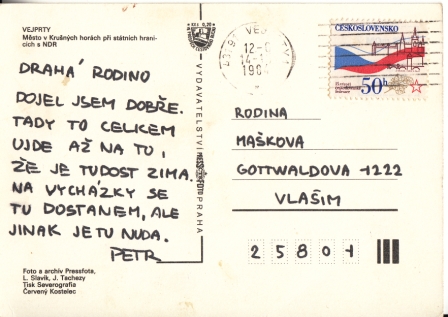 VEJPRTY
Město v Krušných horách při státních hrani-
cích s NDR
DRAHÁ RODINO
DOJEL JSEM DOBŘE.
TADY TO CELKEM
UJDE AŽ NA TO,
ŽE JE TU DOST ZIMA.
NA VYCHÁZKY SE
TU DOSTANEM, ALE
JINAK JE TU NUDA.
PETR
Foto a archiv Pressfote,
L. Slavík, J. Tachezy
Tisk Severografia
Červený Kostelec
VYDAVATELSTVÍ PRESSFOTO PRAHA
ČESKOSLOVENSKO
50h
RODINA
MAŠKOVA
GOTTWALDOVA 1222
VLAŠIM
25801